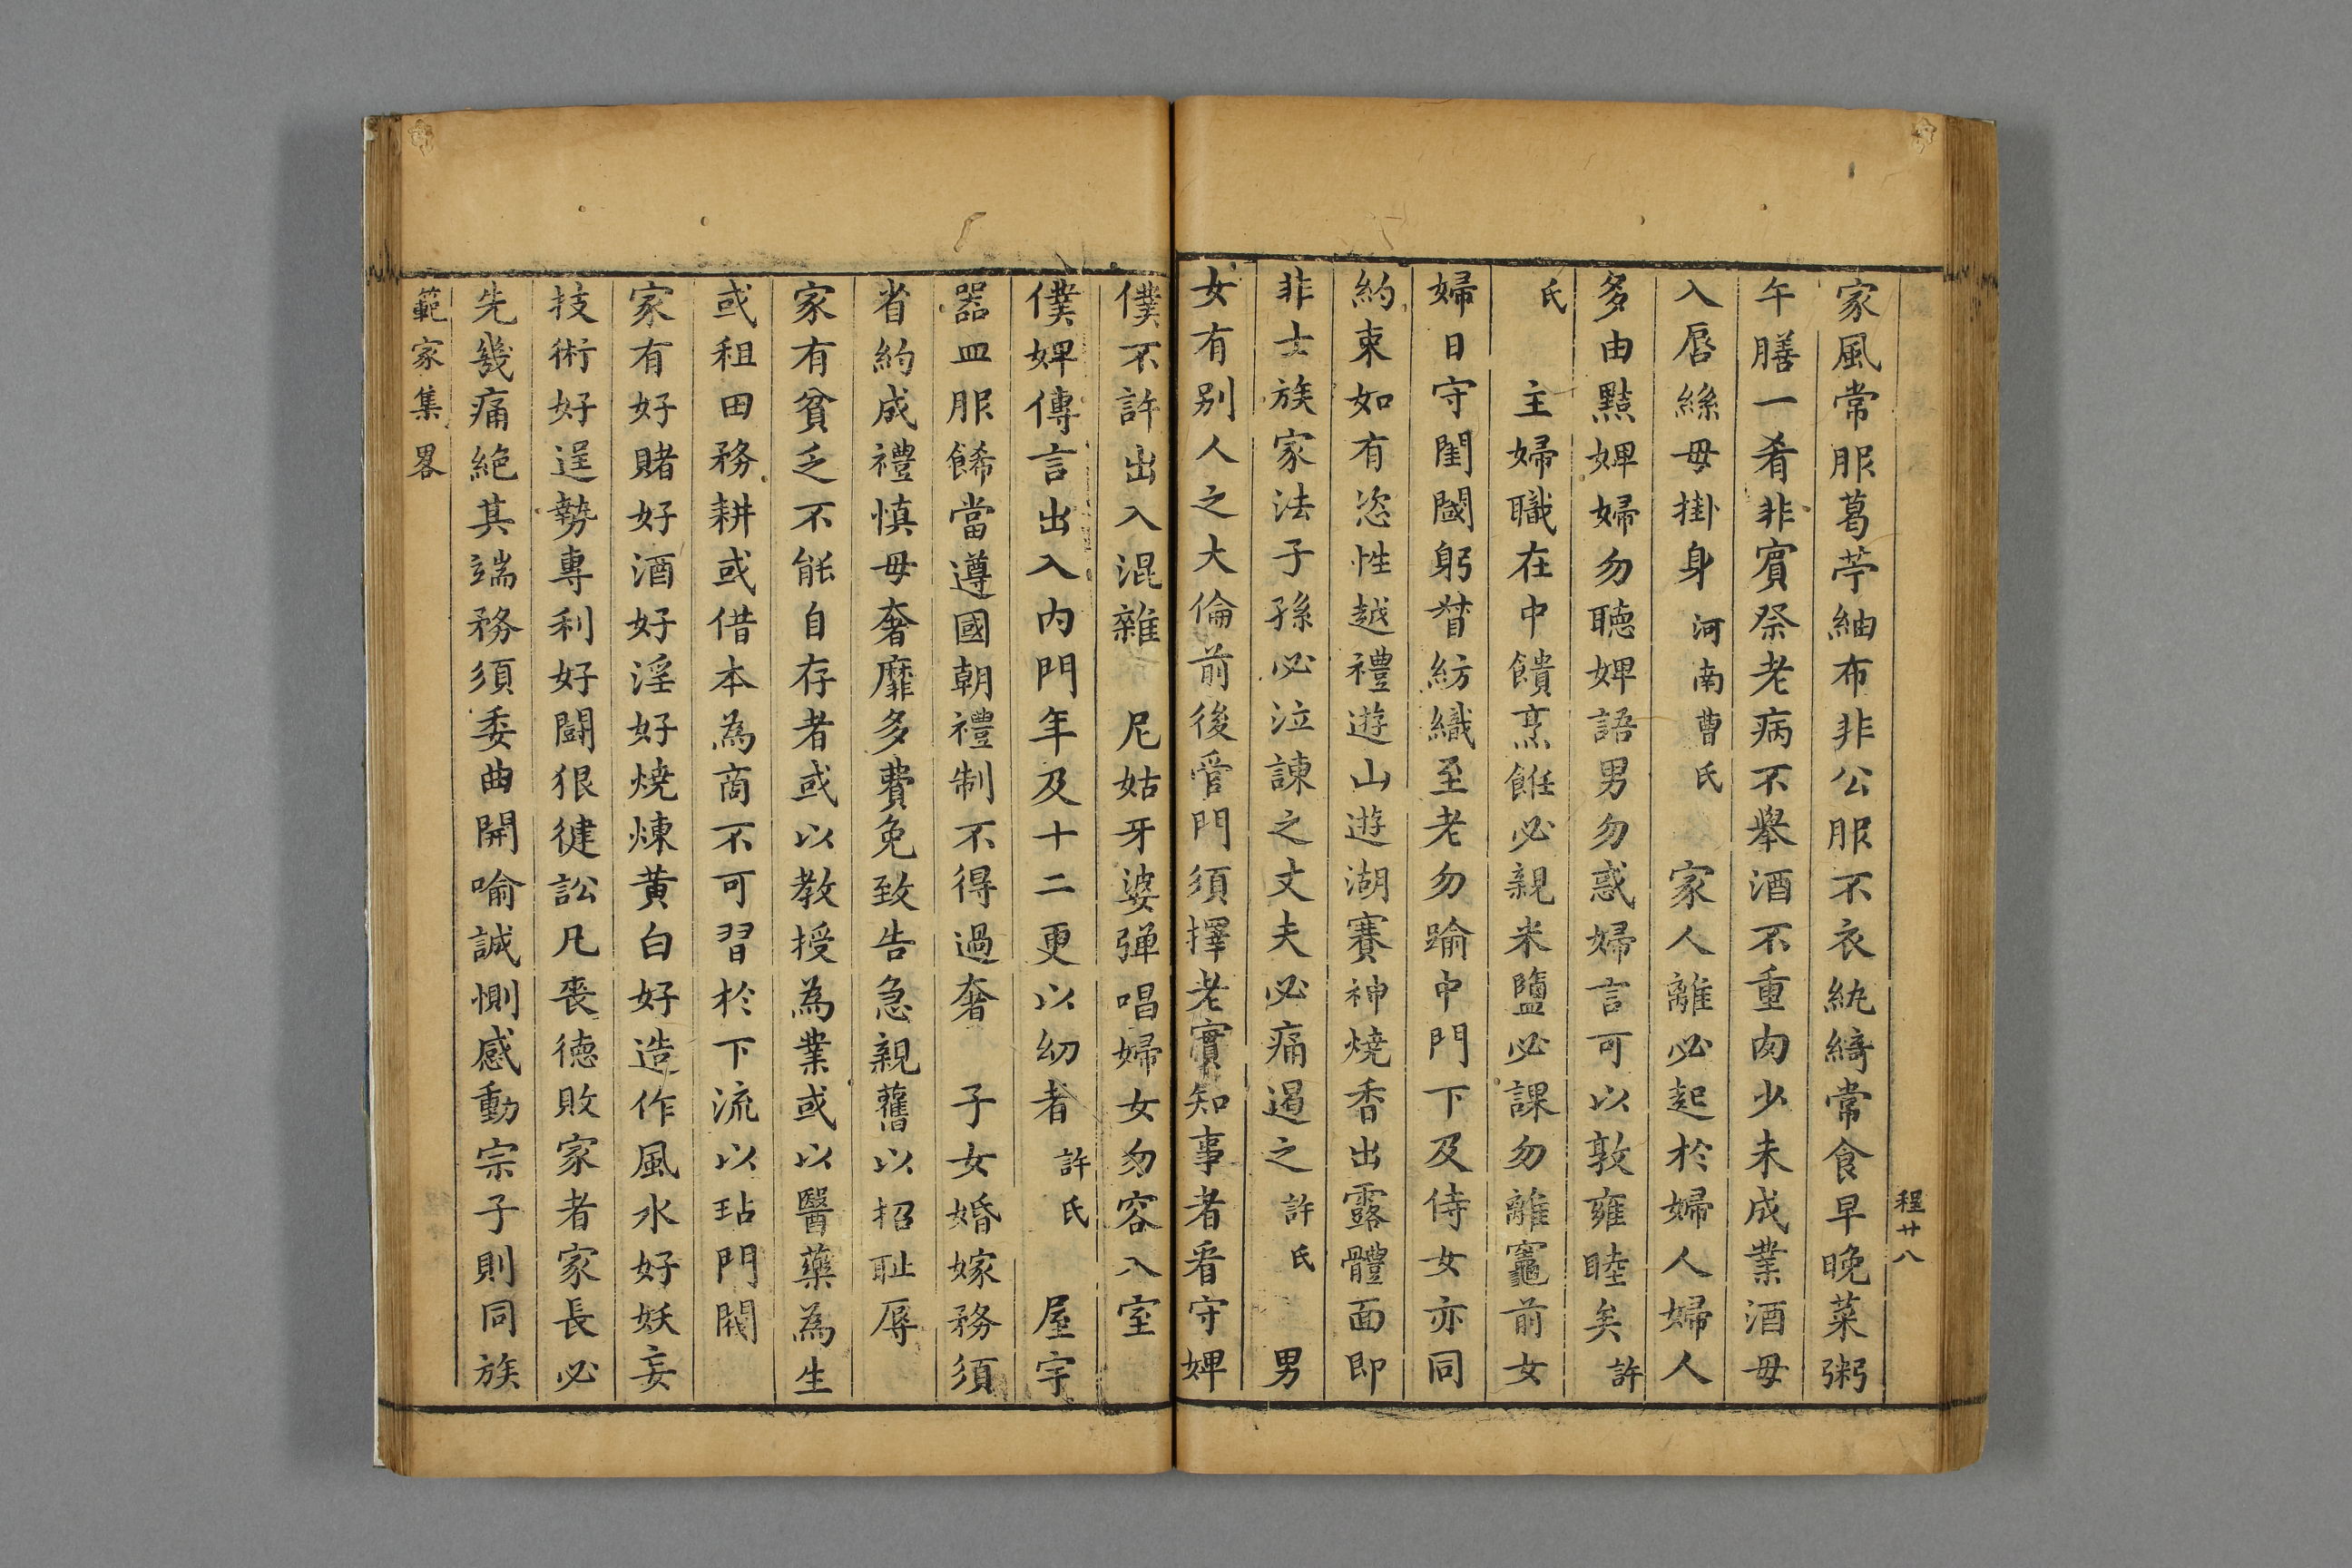 程廿八
家風常服葛苧紬布非公服不衣紈綺常食早晚菜粥
午膳一肴非賓祭老病不舉酒不重肉少未成業酒毋
入唇絲毋掛身河南曹氏 家人離必起於婦人婦人
多由黠婢婦勿聽婢語男勿惑婦言可以敦雍睦矣許
氏 主婦職在中饋烹飪必親米鹽必課勿離竈前女
婦日守閨閫躬督紡織至老勿踰中門下及侍女亦同
約束如有恣性越禮遊山遊湖賽神燒香出露體面即
非士族家法子孫必泣諫之丈夫必痛遏之許氏 男
女有别人之大倫前後管門須擇老實知事者看守婢
僕不許出入混雜 尼姑牙婆弹唱婦女勿容入室
僕婢傳言出入内門年及十二更以幼者許氏 屋宇
器皿服餙當遵國朝禮制不得過奢 子女婚嫁務須
省約成禮慎毋奢靡多費免致告急親舊以招耻辱
家有貧乏不能自存者或以教授為業或以醫藥為生
或租田務耕或借本為商不可習於下流以玷門閥
家有好賭好酒好淫好燒煉黄白好造作風水好妖妄
技術好逞勢專利好鬪狠健訟凡喪德敗家者家長必
先幾痛絕其端務須委曲開喻誠惻感動宗子則同族
範家集畧